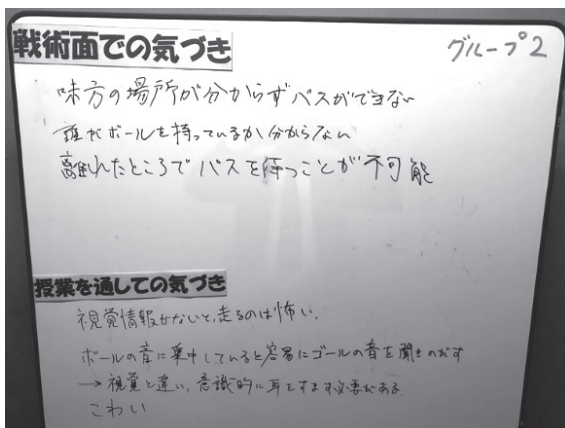 戦術面での気づき
グループ2
味方の場所が分からずパスができない
誰がボールを持っているか分からない
離れたところでパスを待つことが不可能
授業を通しての気づき
視覚情報がないと、走るのは怖い。
ボールの音に集中していると容易にゴールの音を聞きのがす
→ 視覚と違い、意識的に耳をすます必要がある。
こわい